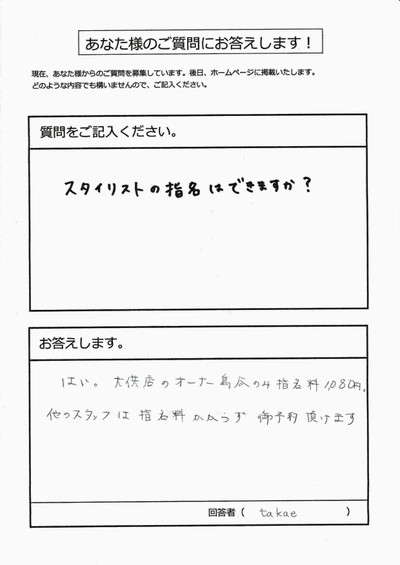 あなた様のご質問にお答えします！
現在、あなた様からのご質問を募集しています。後日、ホームページに掲載いたします。
どのような内容でも構いませんので、ご記入ください。
質問をご記入ください。
スタイリストの指名はできますか？
お答えします。
はい。大供店のオーナー鳥谷のみ指名料1,080円。
他のスタッフは指名料かからず御予約頂けます
回答者（ takae ）